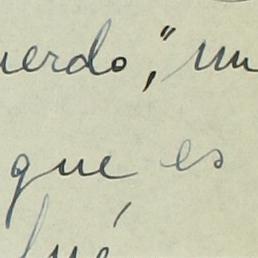 uerdo," un
que es